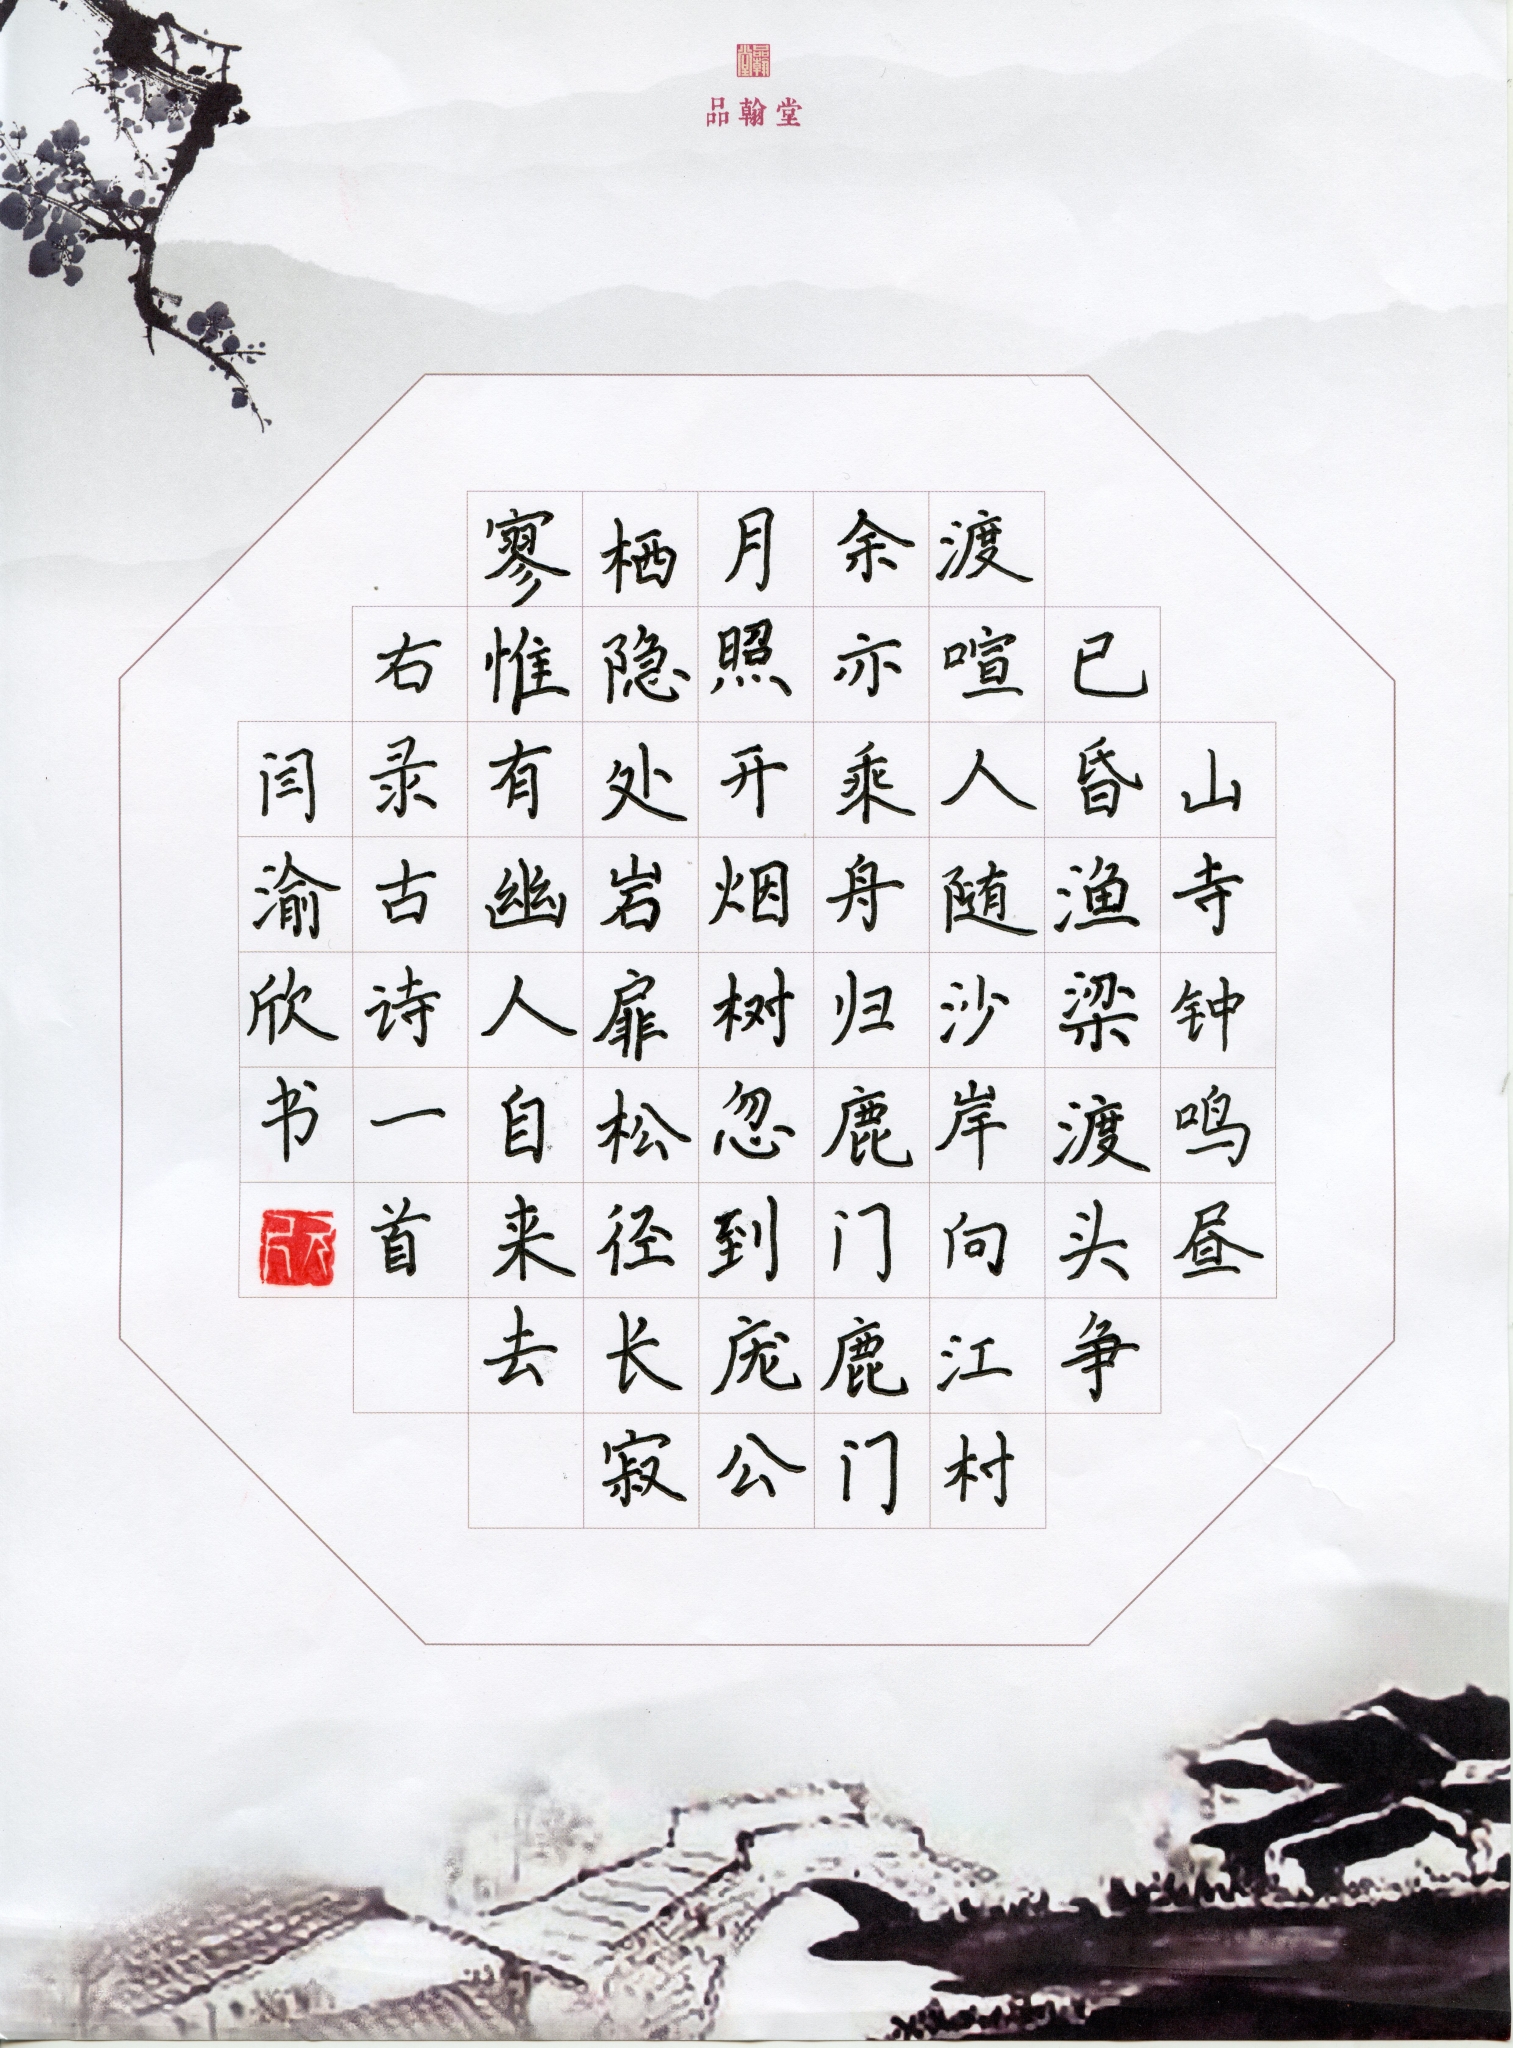 品翰堂
山寺钟鸣昼
已昏渔梁渡头争
渡喧人随沙岸向江村
余亦乘舟归鹿门鹿门
月照开烟树忽到庞公
栖隐处岩扉松径长寂
寥惟有幽人自来去
右录古诗一首
闫渝欣书